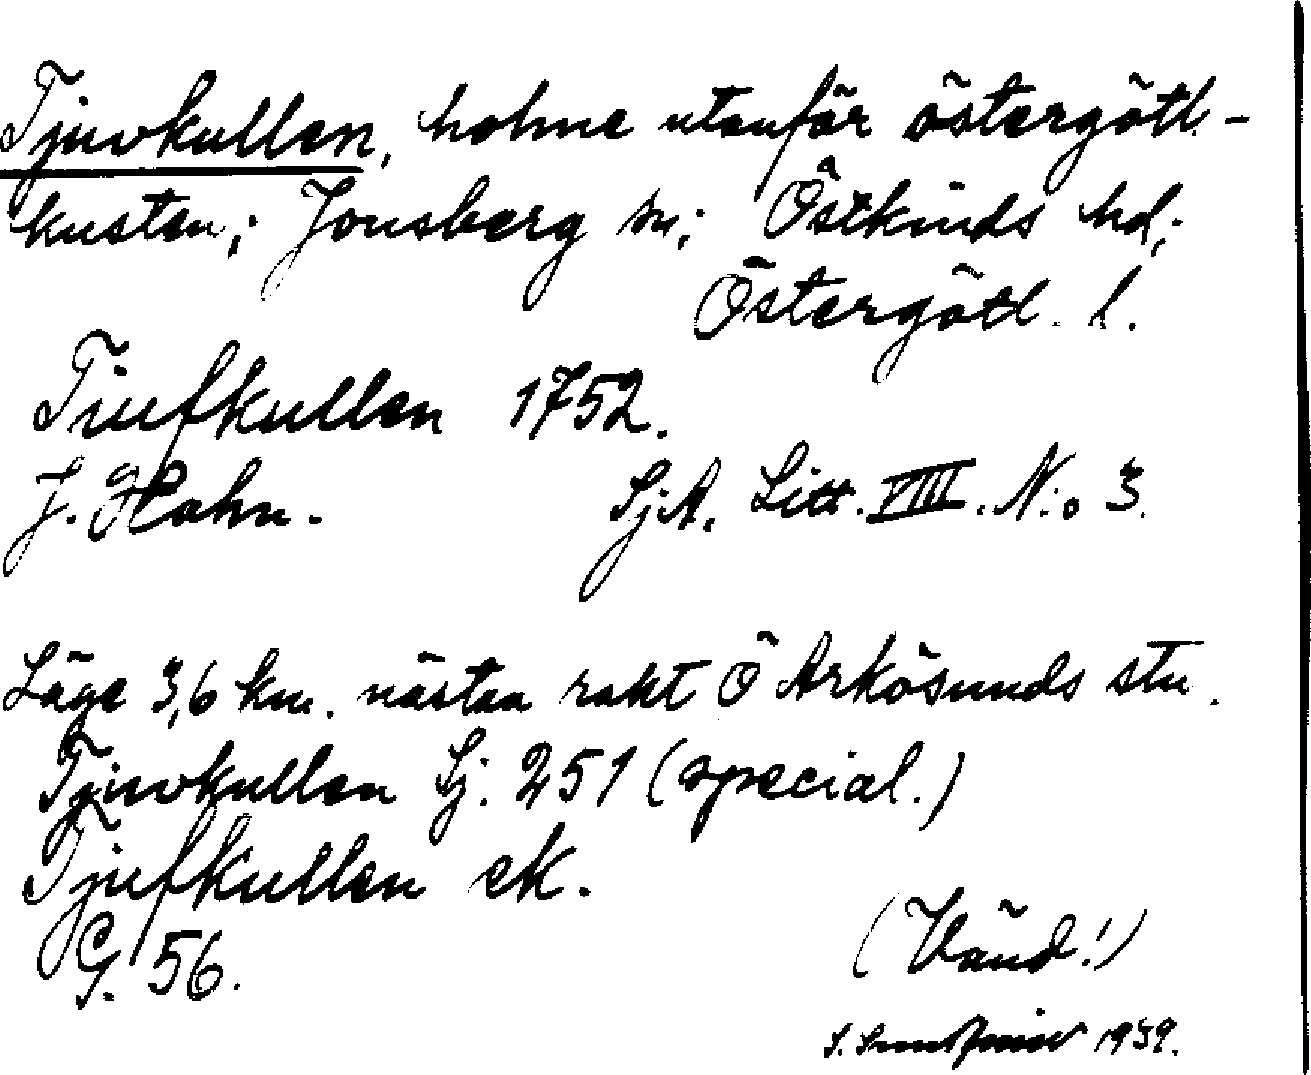 Tjuvkullen, holme utanför östergötl.-
kusten; Jonsberg sn; Östkinds hd;
Östergötl. l.
Tiufkullen 1752.
J. Hahn. SjA. Litt. VIII. N:o 3.
Läge 3,6 km. nästan rakt Ö Arkösunds stn.
Tjuvkullen Sj. 251 (special.)
Tjufkullen ek.
G. 56.
(Vänd!)
S. 1939.